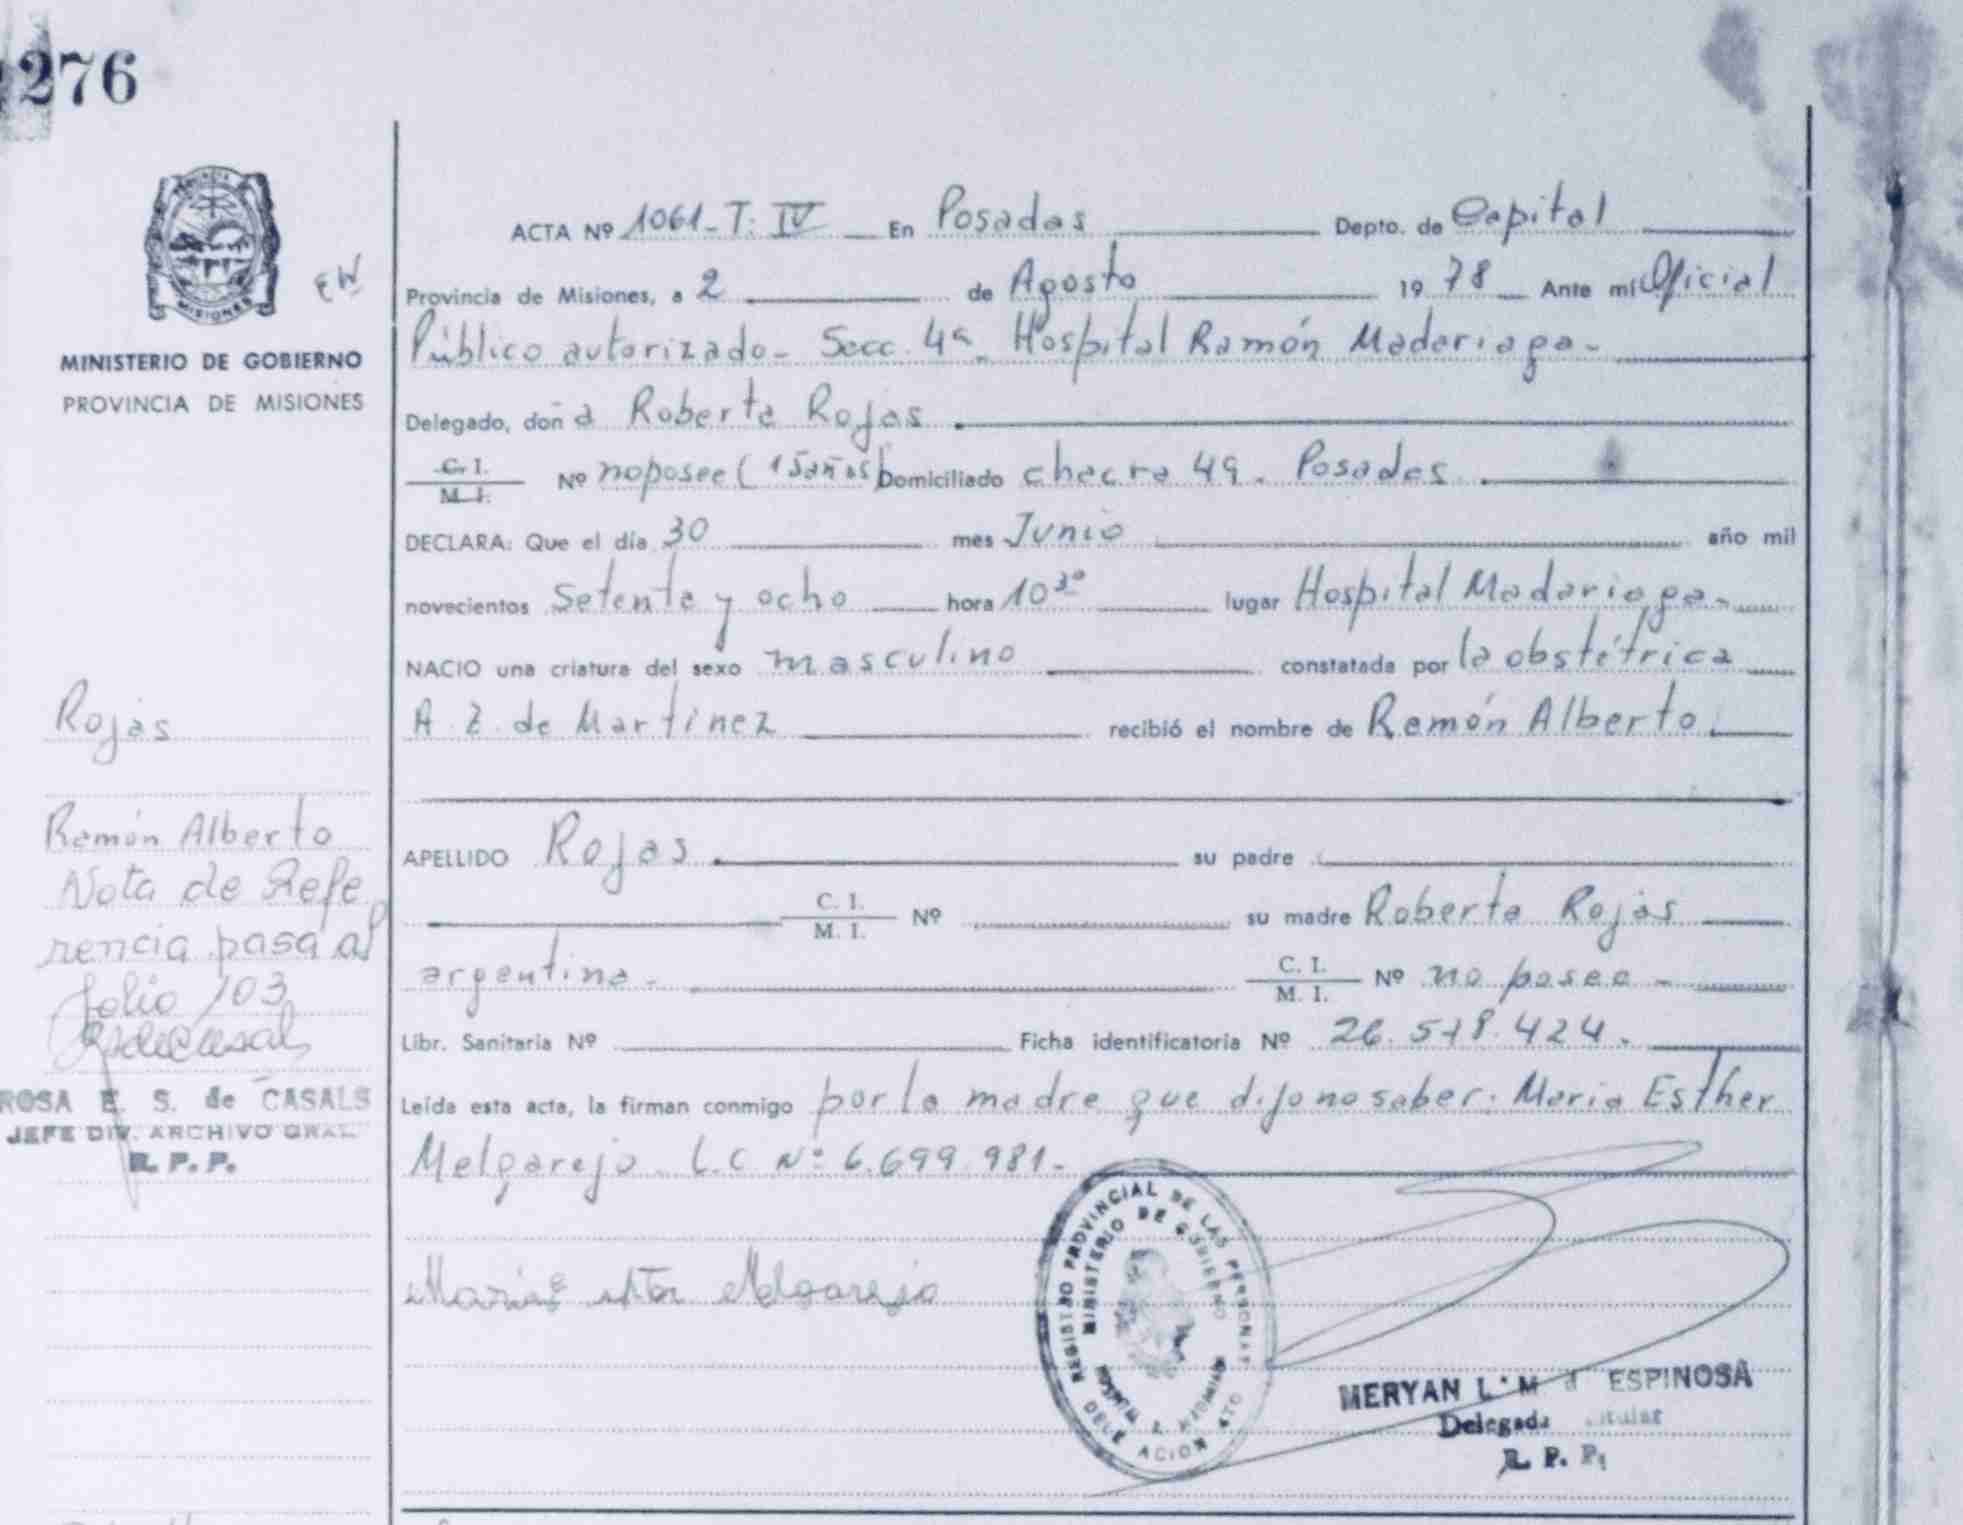 276
MINISTERIO DE GOBIERNO
PROVINCIA DE MISIONES
ACTA Nº 1061-T. IV En Posadas Depto. de Capital
Provincia de Misiones, a 2 de Agosto 1978 Ante mi Oficial
Público autorizado- Secc. 4ª. Hospital Ramón Madariaga-
Delegado, doña Roberta Rojas
C. I. / M. I. Nº no posee (15 años) Domiciliado chacra 49. Posadas
DECLARA: Que el día 30 mes Junio año mil
novecientos Setenta y ocho hora 10³⁰ lugar Hospital Madariaga-
NACIO una criatura del sexo masculino constatada por la obstétrica
A. Z. de Martinez recibió el nombre de Ramón Alberto
APELLIDO Rojas su padre
C. I. / M. I. Nº su madre Roberta Rojas
argentina- C. I. / M. I. Nº no posee-
Libr. Sanitaria Nº Ficha identificatoria Nº 26.518.424.
Leída esta acta, la firman conmigo por la madre que dijo no saber: Maria Esther
Melgarejo. L.C Nº 6.699.981-
Melgarejo
REGISTRO PROVINCIAL DE LAS PERSONAS
MINISTERIO DE GOBIERNO
DELEGACION
MERYAN L. M ESPINOSA
Delegada
R. P. P.
Rojas
Ramón Alberto
Nota de Refe
rencia pasa al
folio 103
ROSA E. S. de CASALS
JEFE DIV. ARCHIVO GRAL.
R. P. P.